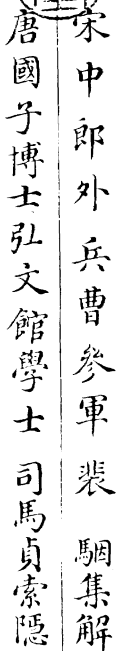 宋中郎外兵曹參軍裴駰集解
唐國子博士弘文館學士司馬貞索隱